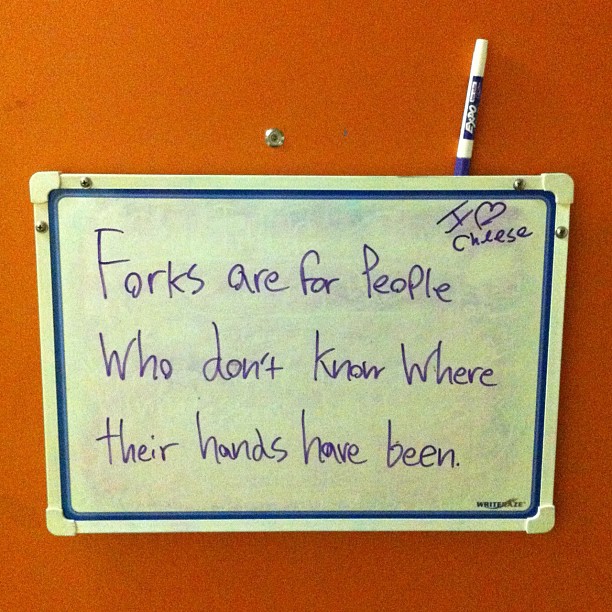 EXPO
I ♡
Cheese
Forks are for People
Who don't know Where
their hands have been.